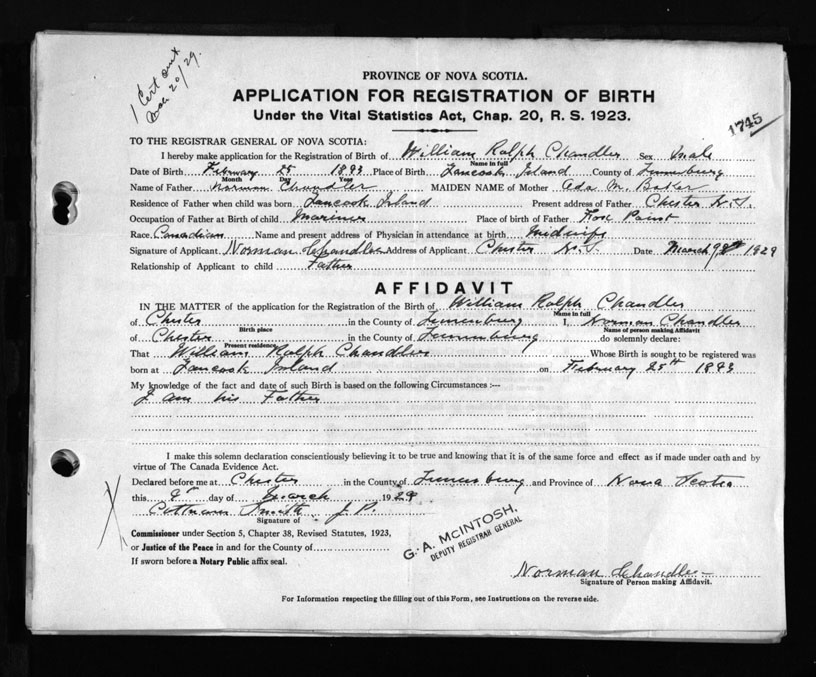 1 Cert out
Mar 20/29.
PROVINCE OF NOVA SCOTIA.
APPLICATION FOR REGISTRATION OF BIRTH
Under the Vital Statistics Act, Chap. 20, R. S. 1923.
1745
TO THE REGISTRAR GENERAL OF NOVA SCOTIA:
I hereby make application for the Registration of Birth of William Ralph Chandler Sex Male
Name in full
Date of Birth February 25 1893 Place of Birth Tancook Island County of Lunenburg
Month Day Year
Name of Father Norman Chandler MAIDEN NAME of Mother Ada M. Baker
Residence of Father when child was born Tancook Island Present address of Father Chester N.S.
Occupation of Father at Birth of child Mariner Place of birth of Father Fox Point
Race Canadian Name and present address of Physician in attendance at birth Midwife
Signature of Applicant Norman Chandler Address of Applicant Chester N.S. Date March 9th 1929
Relationship of Applicant to child Father
AFFIDAVIT
IN THE MATTER of the application for the Registration of the Birth of William Ralph Chandler
Name in full
of Chester in the County of Lunenburg I, Norman Chandler
Birth place Name of person making Affidavit
of Chester in the County of Lunenburg do solemnly declare:
Present residence
That William Ralph Chandler Whose Birth is sought to be registered was
born at Tancook Island on February 25th 1893
My knowledge of the fact and date of such Birth is based on the following Circumstances :—
I am his Father
I make this solemn declaration conscientiously believing it to be true and knowing that it is of the same force and effect as if made under oath and by
virtue of The Canada Evidence Act.
Declared before me at Chester in the County of Lunenburg and Province of Nova Scotia
this 9th day of March 1929
Cottnam Smith J.P.
Signature of
Commissioner under Section 5, Chapter 38, Revised Statutes, 1923,
or Justice of the Peace in and for the County of
If sworn before a Notary Public affix seal.
G. A. McINTOSH,
DEPUTY REGISTRAR GENERAL
Norman Chandler
Signature of Person making Affidavit.
For Information respecting the filling out of this Form, see Instructions on the reverse side.